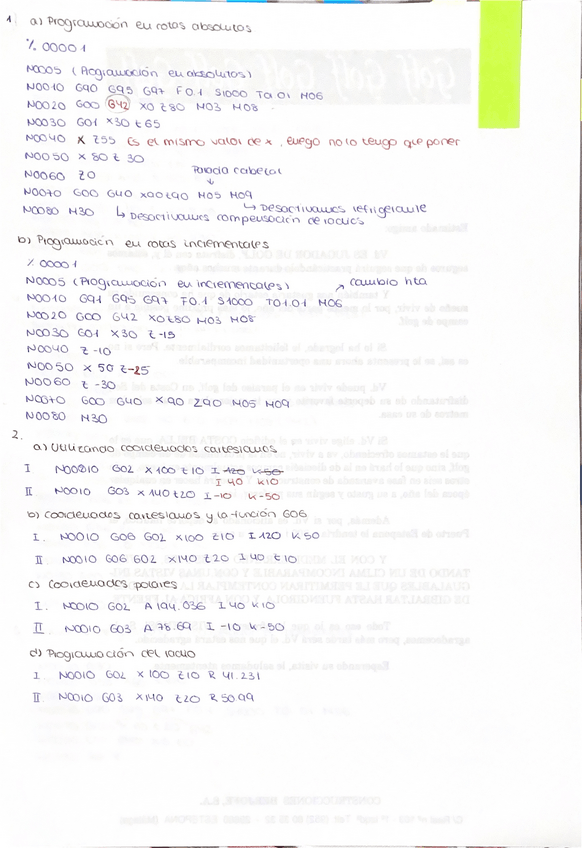 1. a) Programación en cotas absolutas
% 00001
N0005 (Programación en absolutas)
N0010 G90 G95 G97 F0.1 S1000 T01.01 M06
N0020 G00 G42 X0 Z80 M03 M08
N0030 G01 X30 Z65
N0040 X Z55 Es el mismo valor de x, luego no lo tengo que poner
N0050 X80 Z30
N0060 Z0
Parada cabezal
N0070 G00 G40 X100 Z90 M05 M09
↳ Desactivamos refrigerante
N0080 M30 ↳ Desactivamos compensación de radios
b) Programación en cotas incrementales
% 00001
N0005 (Programación en incrementales) cambio hta
N0010 G91 G95 G97 F0.1 S1000 T01.01 M06
N0020 G00 G42 X0 Z80 M03 M08
N0030 G01 X30 Z-15
N0040 Z-10
N0050 X50 Z-25
N0060 Z-30
N0070 G00 G40 X90 Z90 M05 M09
N0080 M30
2.
a) Utilizando coordenadas cartesianas
I N0010 G02 X100 Z10 I120 K50
I40 K10
II N0010 G03 X140 Z20 I-10 K-50
b) Coordenadas cartesianas y la función G06
I. N0010 G06 G02 X100 Z10 I120 K50
II. N0010 G06 G02 X140 Z20 I40 Z10
c) Coordenadas polares
I. N0010 G02 A194.036 I40 K10
II. N0010 G03 A78.69 I-10 K-50
d) Programación del radio
I. N0010 G02 X100 Z10 R41.231
II. N0010 G03 X140 Z20 R50.99